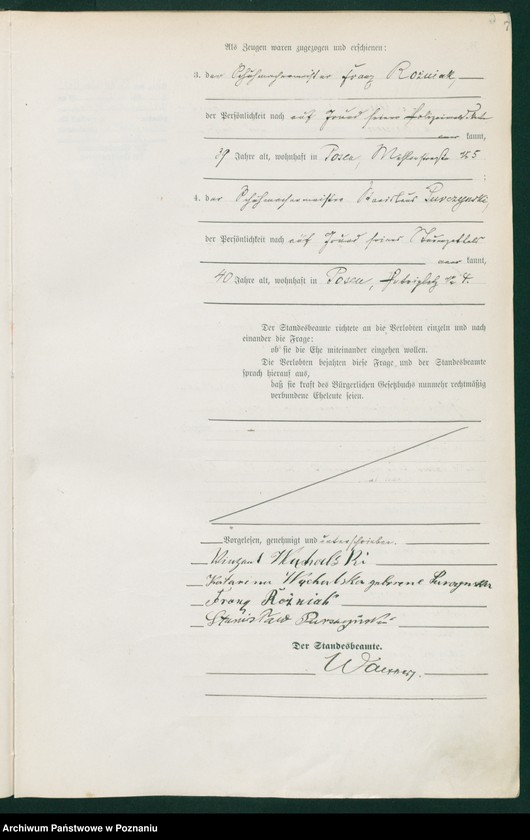 7
Als Zeugen waren zugezogen und erschienen:
3. der Schuhmachermeister Franz Rozniak,
der Persönlichkeit nach auf Grund seines
kannt,
39 Jahre alt, wohnhaft in Posen, № 5
4. der Schuhmachermeister Stanislaus Purczynski,
der Persönlichkeit nach auf Grund seines Steuerzettels
kannt,
40 Jahre alt, wohnhaft in Posen, Petriplatz № 4.
Der Standesbeamte richtete an die Verlobten einzeln und nach
einander die Frage:
ob sie die Ehe miteinander eingehen wollen.
Die Verlobten bejahten diese Frage und der Standesbeamte
sprach hierauf aus,
daß sie kraft des Bürgerlichen Gesetzbuchs nunmehr rechtmäßig
verbundene Eheleute seien.
Vorgelesen, genehmigt und unterschrieben.
Winzent Wychalski
Katarzyna Wychalska geborene
Franz Rożniak
Stanisław
Der Standesbeamte.
Archiwum Państwowe w Poznaniu